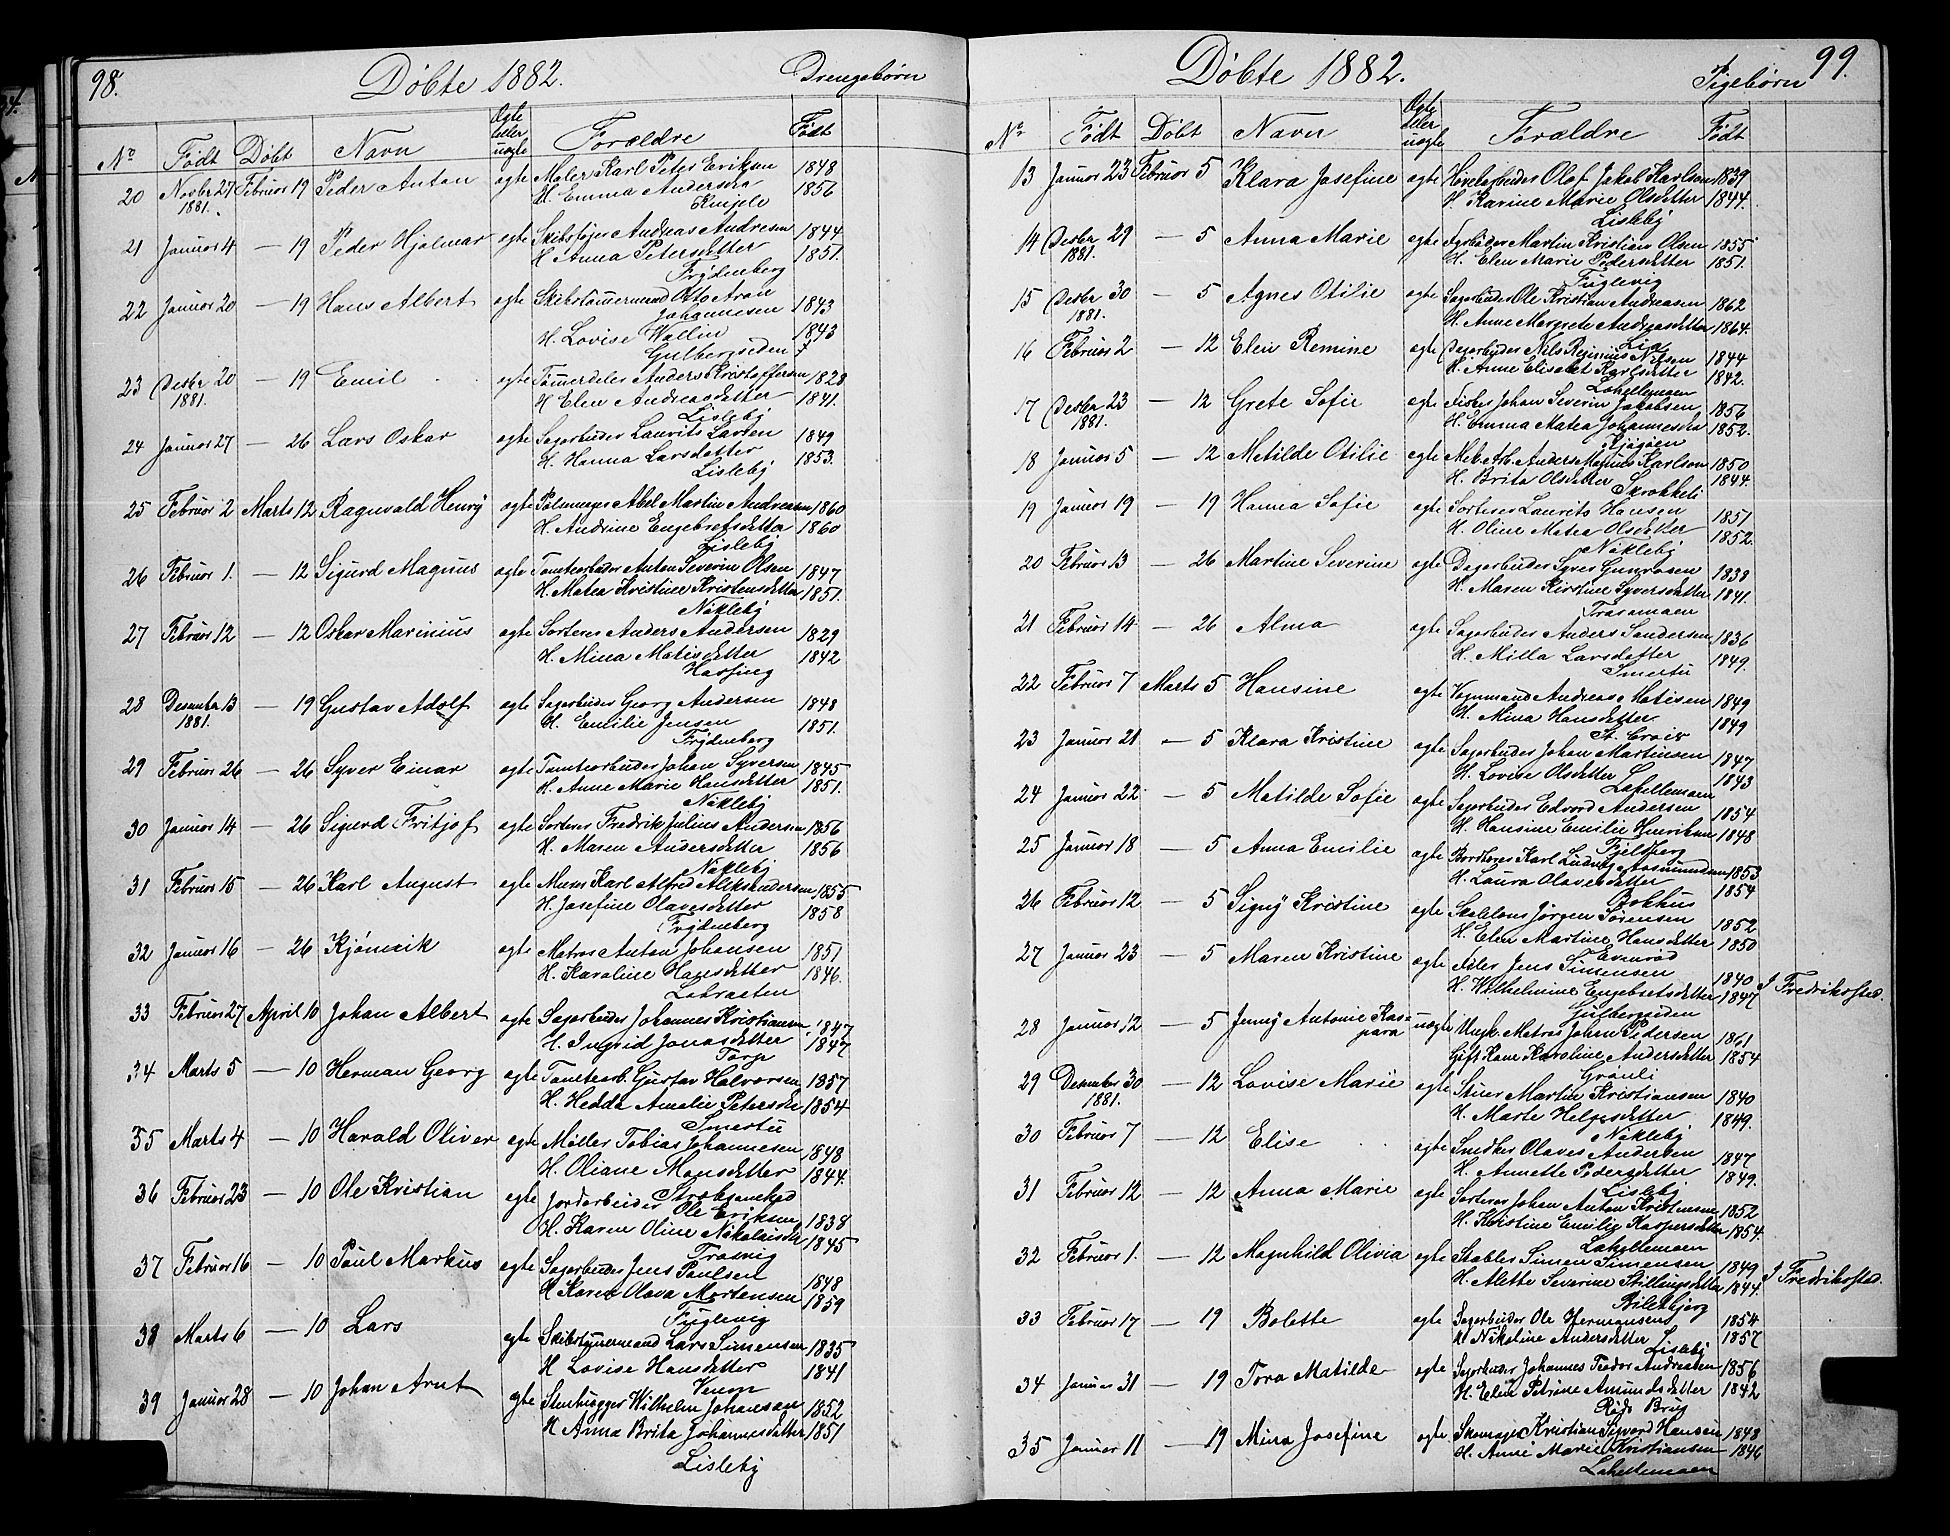 98.
Döbte 1882.
Drengebörn
No Födt Döbt Navn Ægte eller uægte Forældre Födt
20 Novbr 27 1881. Februar 19 Peder Anton ægte Maler Karl Peter Eriksen 1848
H. Emma Andersda 1856
21 Januar 4 — 19 Peder Hjalmar ægte Skibstöjer Andreas Andresen 1844
H. Anna Petersdatter 1851.
Frydenberg
22 Januar 20 — 19 Hans Albert ægte Skibstömermand Otto Aron
Johannesen 1843
H. Lovise Wallin 1843
Gulbergsiden
23 Desbr 20 1881. — 19 Emil ægte Tömerdeler Anders Kristoffersen 1828
H Elen Andreasdatter 1841.
Lisleby
24 Januar 27 — 26 Lars Oskar ægte Sagarbeider Laurits Larsen 1849
H. Hanna Larsdatter 1853.
Lisleby
25 Februar 2 Marts 12 Ragnvald Henry ægte Pölsemager Abel Martin Andreasen 1860
H. Andrine Engebretsdatter 1860
Lisleby
26 Februar 1. — 12 Sigurd Magnus ægte Tomtearbeider Anton Severin Olsen 1847
H. Matea Kristine Kristensdatter 1851.
Nökleby
27 Februar 12 — 12 Oskar Marinius ægte Sorterer Anders Andersen 1829
H. Mina Matisdatter 1842
28 Desember 13 1881. — 19 Gustav Adolf ægte Sagarbeider Georg Andersen 1848
H. Emilie Jensen 1851.
Frydenberg
29 Februar 26 — 26 Syver Einar ægte Tomtearbeider Johan Syversen 1845
H. Anne Marie Hansdatter 1851.
Nökleby
30 Januar 14 — 26 Sigurd Fritjof ægte Sorterer Fredrik Julius Andersen 1856
H. Maren Andersdatter 1856
Nökleby
31 Februar 15 — 26 Karl August ægte Murer Karl Alfred Aleksandersen 1855
H. Josefine Olavesdatter 1858
Frydenberg
32 Januar 16 — 26 ægte Matros Anton Johansen 1851
H. Karoline Hansdatter 1846.
33 Februar 27 April 10 Johan Albert ægte Sagarbeider Johannes Kristiansen 1847
H. Ingrid Jonasdatter 1847
Torp
34 Marts 5 — 10 Herman Georg ægte Tomtearb. Gustav Halvorsen 1857
H. Hedda Amalie Petersda 1854
Smertu
35 Marts 4 — 10 Harald Oliver ægte Möller Tobias Johannesen 1848
H. Oliane Mansdatter 1844.
36 Februar 23 — 10 Ole Kristian ægte Jordarbeider Ole Eriksen 1838
H. Karen Oline Nikolaisda 1845
Trosvig
37 Februar 16 — 10 Paul Markus ægte Sagarbeider Jens Paulsen 1848
H Karen Olava Mortensen 1859
Fuglevig
38 Marts 6 — 10 Lars ægte Skibstömermand Lars Simensen 1835
H Lovise Hansdatter 1841
39 Januar 28 — 10 Johan Arnt ægte Stenhugger Wilhelm Johansen 1852.
H Anna Brita Johannesdatter 1851
Lisleby
Döbte 1882.
Pigebörn
99.
No Födt Döbt Navn Ægte eller uægte Forældre Födt
13 Januar 23 Februar 5 Klara Josefine ægte Hövelarbeider Olof Jakob Karlson 1839
H. Karine Marie Olsdatter 1844.
Lisleby
14 Desbr 29 1881. — 5 Anna Marie ægte Fyrböder Martin Kristian Olsen 1855
H. Elen Marie Pedersdatter 1851.
Fuglevig
15 Desbr 30 1881. — 5 Agnes Otilie ægte Sagarbeider Ole Kristian Andreasen 1862
H. Anne Margrete Andreasdatter 1864.
Lia
16 Februar 2 — 12 Elen Remine ægte Dagarbeider Nils Reginius Nilsen 1844
H. Anne Elisabet Karlsdatter 1842.
Lahellemoen
17 Desbr 23 1881. — 12 Grete Sofie ægte Fisker Johan Severin Jakobsen 1856
H. Emma Matea Johannesda 1852.
Kjøgøen
18 Januar 5 — 12 Matilde Otilie ægte Mek. Arb. Anders Magnus Karlson 1850
H. Brita Olsdatter 1844.
19 Januar 19 — 19 Hanna Sofie ægte Sorterer Laurits Hansen 1851
H. Oline Matea Olsdatter 1852.
Nökleby
20 Februar 13 — 26 Martine Severine ægte Dagarbeider Syver Gunnrosen 1838
H. Maren Kirstine Syversdatter 1841.
21 Februar 14 — 26 Alma ægte Sagarbeider Anders Sandersen 1836
H. Milla Larsdatter 1849.
Smertu
22 Februar 7 Marts 5 Hansine ægte Vognmand Andreas Matisen 1849
H. Mina Hansdatter 1849
St. Croix
23 Januar 21 — 5 Klara Kristine ægte Sagarbeider Johan Martinsen 1847
H. Lovise Olsdatter 1843
Lahellemoen
24 Januar 22 — 5 Matilde Sofie ægte Sagarbeider Edvard Andersen 1854
H. Hansine Emilie Henriksen 1848
Fjeldberg
25 Januar 18 — 5 Anna Emilie ægte Bordtorer Karl Ludvig Aasmundsen 1853
H. Laura Olavesdatter 1854
26 Februar 12 — 5 Signy Kristine ægte Jörgen Sörensen 1852
H. Elen Martine Hansdatter 1850
Evenröd
27 Januar 23 — 5 Maren Kristine ægte Feler Jens Simensen 1840
H. Wilhelmine Engebretsdatter 1847 I Fredrikssted.
Gulbergsiden
28 Januar 12 — 5 Jenny Antonie Kas-
para uægte Ungk. Matros Johan Pedersen 1861
Gift Kone Karoline Andersdatter 1854
Grönli
29 Desember 30 1881. — 12 Lovise Marie ægte Stuer Martin Kristiansen 1840
H. Marte Helgesdatter 1849.
Nökleby
30 Februar 7 — 12 Elise ægte Smedker Olaves Andersen 1847
H. Annette Pedersdatter 1849.
Lisleby
31 Februar 12 — 12 Anna Marie ægte Sorterer Johan Anton Kristensen 1852
H. Kristine Emilie Kaspersdatter 1854.
Lahellemoen
32 Februar 1. — 12 Magnhild Olivia ægte Stabler Simen Simensen 1849 I Fredrikssted.
H. Alette Severine Stillingsdatter 1844.
Bilitbjerg
33 Februar 17 — 19 Bolette ægte Sagarbeider Ole Hermansen 1854
H. Nikoline Andersdatter 1857
Lisleby
34 Januar 31 — 19 Tora Matilde ægte Sagarbeider Johannes Teodor Andreasen 1856
H. Elen Petrine Amundsdatter 1842
Röds Brug
35 Januar 11 — 19 Mina Josefine ægte Skomager Kristian Sigvard Hansen 1848
H. Anne Marie Kristiansen 1846
Lahellemoen